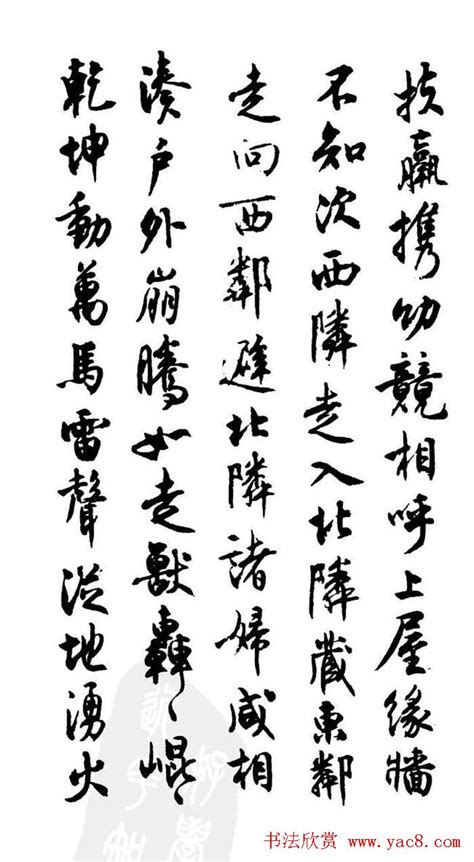 扶羸携幼競相呼上屋緣牆
不知次西隣走入北隣藏東鄰
走向西鄰避北隣諸婦咸相
湊戶外崩騰如走獸轟〻崐〻
乾坤動萬馬雷聲從地湧火
书法欣赏 www.yac8.com